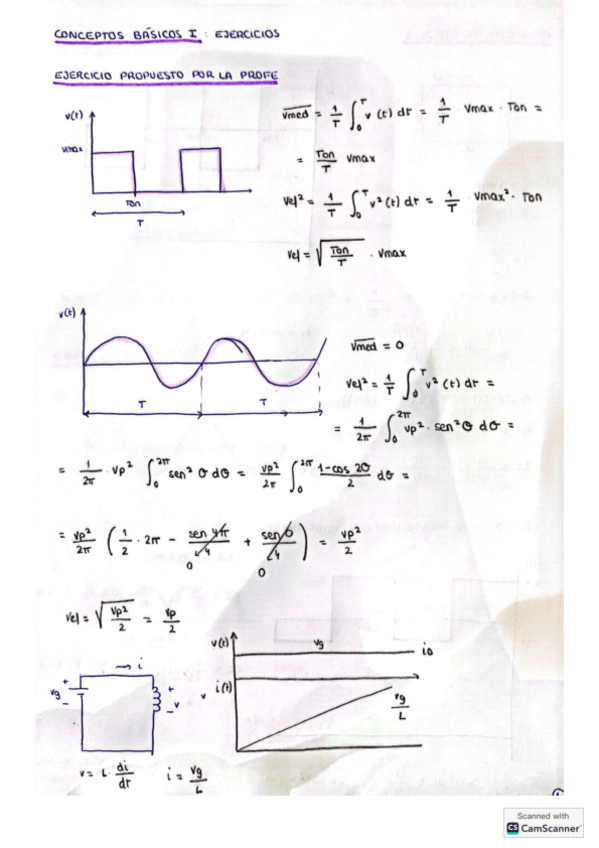 CONCEPTOS BÁSICOS I : EJERCICIOS
EJERCICIO PROPUESTO POR LA PROFE
v(t)
vmax
Ton
T
vmed = 1/T ∫₀ᵀ v (t) dt = 1/T · vmax · Ton =
= Ton/T vmax
vef² = 1/T ∫₀ᵀ v² (t) dt = 1/T · vmax² · Ton
vef = √(Ton/T) · vmax
v(t)
T
T
vmed = 0
vef² = 1/T ∫₀ᵀ v² (t) dt =
= 1/2π ∫₀²π vp² · sen² θ dθ =
= 1/2π · vp² ∫₀²π sen² θ dθ = vp²/2π ∫₀²π (1-cos 2θ)/2 dθ =
= vp²/2π ( 1/2 · 2π - sen 4π/4 + sen 0/4 ) = vp²/2
0
0
vef = √(vp²/2) = vp/2
→ i
+
vg
-
+
- v
v(t)
vg
io
v
i(t)
vg/L
v = L · di/dt
i = vg/L
Scanned with
CS CamScanner